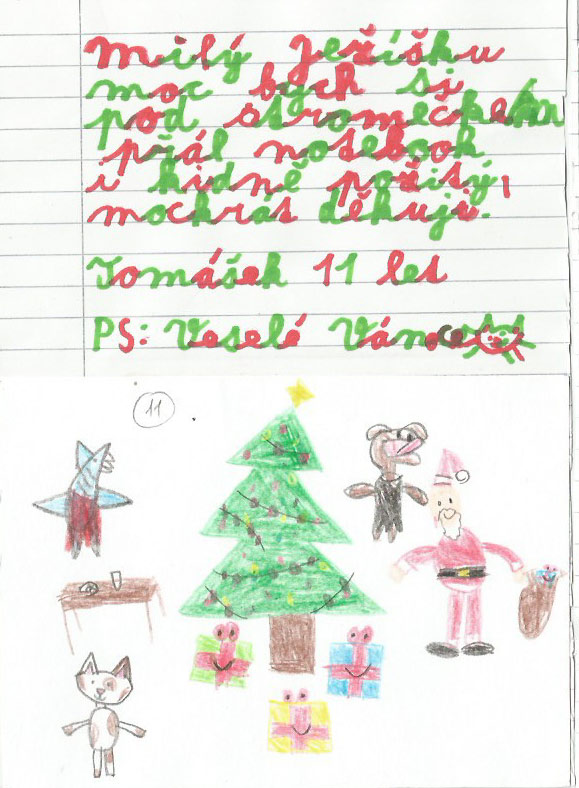 Milý Ježíšku
moc bych si
pod stromečkem
přál notebook
i kidně požitý,
mockrás děkuji.
Tomášek 11 let
PS: Veselé Vánoce
11